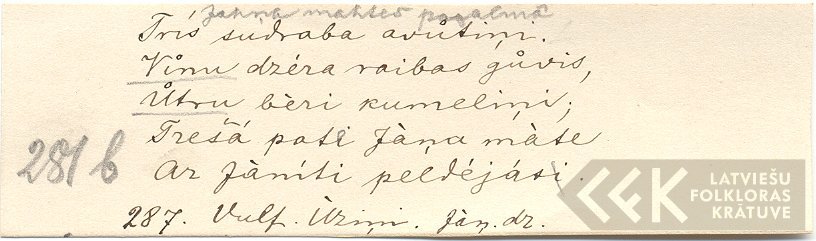 Jahņa mahtes pagalmā
Trís sudraba avůtiņi.
Vínu dzéra raibas gůvis,
Ůtru bèri kumeliņi;
Trešâ pati Jàņa màte
Ar Jàníti peldéjási.
281 b
287. Vulf. Ùzņi. Jàņ. dz.
LATVIEŠU
FOLKLORAS
KRĀTUVE